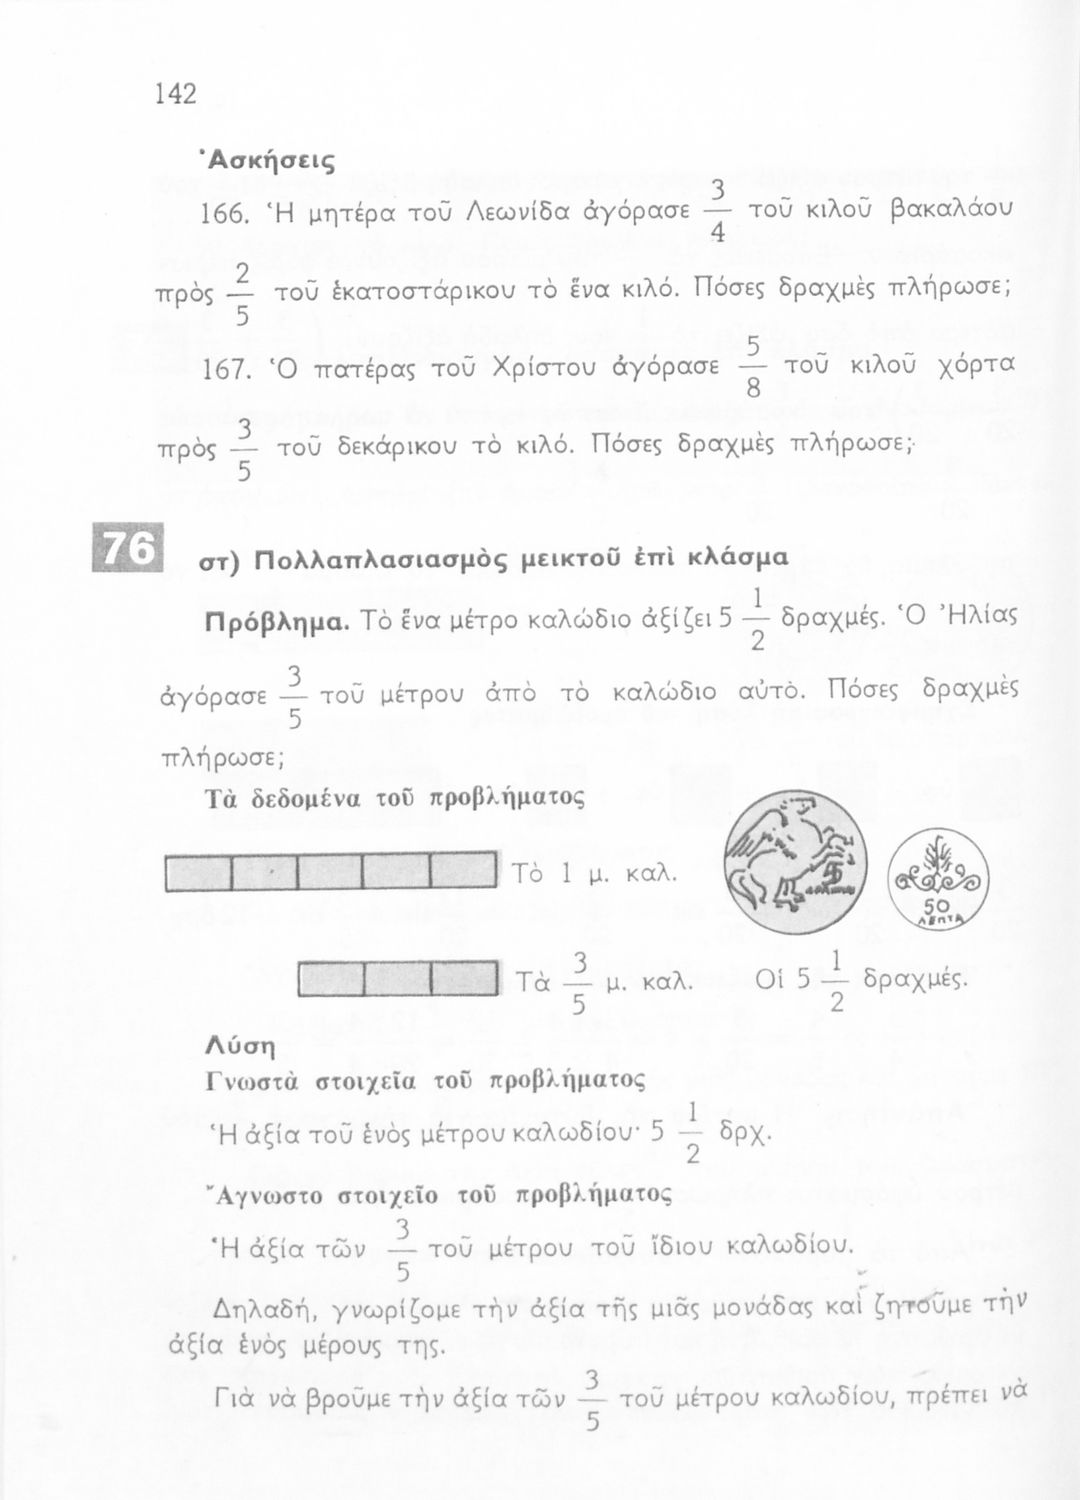 142
Ἀσκήσεις
166. Ἡ μητέρα τοῦ Λεωνίδα ἀγόρασε 3/4 τοῦ κιλοῦ βακαλάου
πρὸς 2/5 τοῦ ἑκατοστάρικου τὸ ἕνα κιλό. Πόσες δραχμὲς πλήρωσε;
167. Ὁ πατέρας τοῦ Χρίστου ἀγόρασε 5/8 τοῦ κιλοῦ χόρτα
πρὸς 3/5 τοῦ δεκάρικου τὸ κιλό. Πόσες δραχμὲς πλήρωσε;
76 στ) Πολλαπλασιασμὸς μεικτοῦ ἐπὶ κλάσμα
Πρόβλημα. Τὸ ἕνα μέτρο καλώδιο ἀξίζει 5 1/2 δραχμές. Ὁ Ἠλίας
ἀγόρασε 3/5 τοῦ μέτρου ἀπὸ τὸ καλώδιο αὐτὸ. Πόσες δραχμὲς
πλήρωσε;
Τὰ δεδομένα τοῦ προβλήματος
Τὸ 1 μ. καλ.
5 ΔΡΑΧΜΑΙ
50
ΛΕΠΤΑ
Τὰ 3/5 μ. καλ. Οἱ 5 1/2 δραχμές.
Λύση
Γνωστὰ στοιχεῖα τοῦ προβλήματος
Ἡ ἀξία τοῦ ἑνὸς μέτρου καλωδίου· 5 1/2 δρχ.
Ἄγνωστο στοιχεῖο τοῦ προβλήματος
Ἡ ἀξία τῶν 3/5 τοῦ μέτρου τοῦ ἴδιου καλωδίου.
Δηλαδή, γνωρίζομε τὴν ἀξία τῆς μιᾶς μονάδας καὶ ζητοῦμε τὴν
ἀξία ἑνὸς μέρους της.
Γιὰ νὰ βροῦμε τὴν ἀξία τῶν 3/5 τοῦ μέτρου καλωδίου, πρέπει νὰ